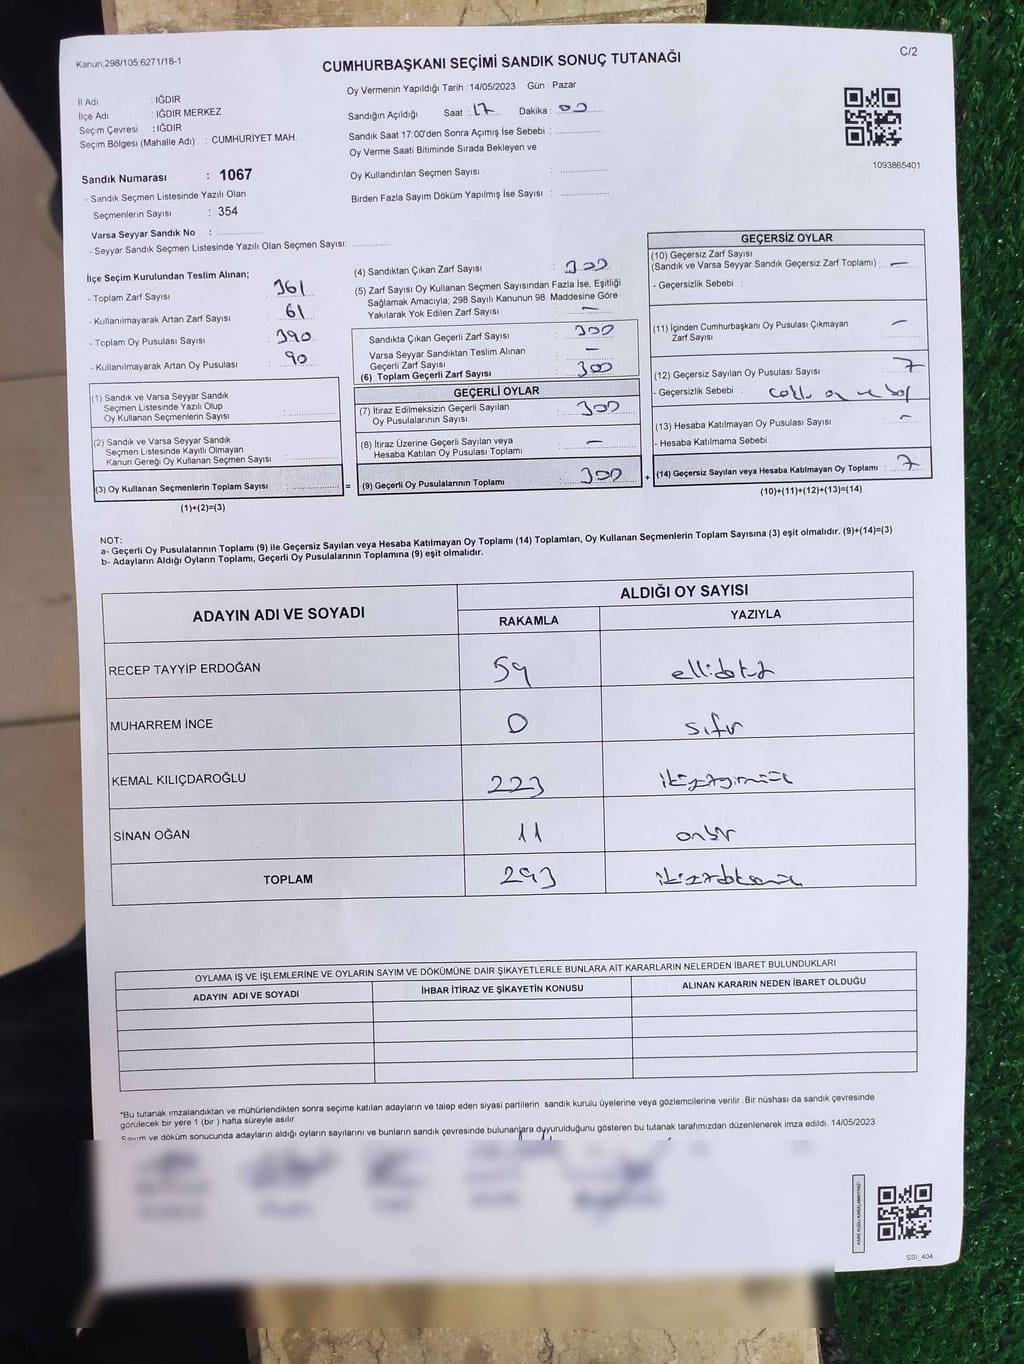 Kanun;298/105;6271/18-1
CUMHURBAŞKANI SEÇİMİ SANDIK SONUÇ TUTANAĞI
C/2
Oy Vermenin Yapıldığı Tarih :14/05/2023 Gün : Pazar
İl Adı : IĞDIR
İlçe Adı : IĞDIR MERKEZ
Seçim Çevresi : IĞDIR
Seçim Bölgesi (Mahalle Adı) : CUMHURİYET MAH.
Sandığın Açıldığı Saat : 17 Dakika : 00
Sandık Saat 17:00'den Sonra Açımış İse Sebebi :
Oy Verme Saati Bitiminde Sırada Bekleyen ve
Oy Kullandırılan Seçmen Sayısı :
Birden Fazla Sayım Döküm Yapılmış İse Sayısı :
1093865401
Sandık Numarası : 1067
- Sandık Seçmen Listesinde Yazılı Olan
Seçmenlerin Sayısı : 354
Varsa Seyyar Sandık No :
- Seyyar Sandık Seçmen Listesinde Yazılı Olan Seçmen Sayısı:
İlçe Seçim Kurulundan Teslim Alınan;
- Toplam Zarf Sayısı : 361
- Kullanılmayarak Artan Zarf Sayısı : 61
- Toplam Oy Pusulası Sayısı : 390
- Kullanılmayarak Artan Oy Pusulası : 90
(1) Sandık ve Varsa Seyyar Sandık
Seçmen Listesinde Yazılı Olup
Oy Kullanan Seçmenlerin Sayısı :
(2) Sandık ve Varsa Seyyar Sandık
Seçmen Listesinde Kayıtlı Olmayan
Kanun Gereği Oy Kullanan Seçmen Sayısı :
(3) Oy Kullanan Seçmenlerin Toplam Sayısı :
(1)+(2)=(3)
=
(4) Sandıktan Çıkan Zarf Sayısı : 300
(5) Zarf Sayısı Oy Kullanan Seçmen Sayısından Fazla İse, Eşitliği
Sağlamak Amacıyla; 298 Sayılı Kanunun 98. Maddesine Göre
Yakılarak Yok Edilen Zarf Sayısı : —
Sandıkta Çıkan Geçerli Zarf Sayısı : 300
Varsa Seyyar Sandıktan Teslim Alınan
Geçerli Zarf Sayısı : —
(6) Toplam Geçerli Zarf Sayısı : 300
GEÇERLİ OYLAR
(7) İtiraz Edilmeksizin Geçerli Sayılan
Oy Pusulalarının Sayısı : 300
(8) İtiraz Üzerine Geçerli Sayılan veya
Hesaba Katılan Oy Pusulası Toplamı : —
(9) Geçerli Oy Pusulalarının Toplamı : 300
+
GEÇERSİZ OYLAR
(10) Geçersiz Zarf Sayısı
(Sandık ve Varsa Seyyar Sandık Geçersiz Zarf Toplamı) : —
- Geçersizlik Sebebi :
(11) İçinden Cumhurbaşkanı Oy Pusulası Çıkmayan
Zarf Sayısı : —
(12) Geçersiz Sayılan Oy Pusulası Sayısı : 7
- Geçersizlik Sebebi :
(13) Hesaba Katılmayan Oy Pusulası Sayısı : —
- Hesaba Katılmama Sebebi :
(14) Geçersiz Sayılan veya Hesaba Katılmayan Oy Toplamı : 7
(10)+(11)+(12)+(13)=(14)
NOT:
a- Geçerli Oy Pusulalarının Toplamı (9) ile Geçersiz Sayılan veya Hesaba Katılmayan Oy Toplamı (14) Toplamları, Oy Kullanan Seçmenlerin Toplam Sayısına (3) eşit olmalıdır. (9)+(14)=(3)
b- Adayların Aldığı Oyların Toplamı, Geçerli Oy Pusulalarının Toplamına (9) eşit olmalıdır.
ADAYIN ADI VE SOYADI
ALDIĞI OY SAYISI
RAKAMLA YAZIYLA
RECEP TAYYİP ERDOĞAN 59 ellidokuz
MUHARREM İNCE 0 sıfır
KEMAL KILIÇDAROĞLU 223 ikiyüzyirmiüç
SİNAN OĞAN 11 onbir
TOPLAM 293 ikiyüzdoksanüç
OYLAMA İŞ VE İŞLEMLERİNE VE OYLARIN SAYIM VE DÖKÜMÜNE DAİR ŞİKAYETLERLE BUNLARA AİT KARARLARIN NELERDEN İBARET BULUNDUKLARI
ADAYIN ADI VE SOYADI İHBAR İTİRAZ VE ŞİKAYETİN KONUSU ALINAN KARARIN NEDEN İBARET OLDUĞU
*Bu tutanak imzalandıktan ve mühürlendikten sonra seçime katılan adayların ve talep eden siyasi partilerin sandık kurulu üyelerine veya gözlemcilerine verilir .Bir nüshası da sandık çevresinde
görülecek bir yere 1 (bir ) hafta süreyle asılır.
Sayım ve döküm sonucunda adayların aldığı oyların sayılarını ve bunların sandık çevresinde bulunanlara duyurulduğunu gösteren bu tutanak tarafımızdan düzenlenerek imza edildi. 14/05/2023
SSI_404